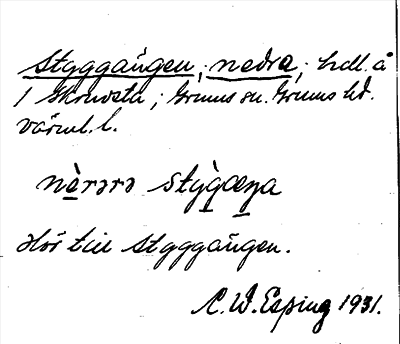 Stygggången, nedra; hdl. å
1 Skruvsta; Grums sn. Grums hd.
värml. l.
nèrərə stỳgæŋa
Hör till Stygggången.
C. W. Esping 1931.